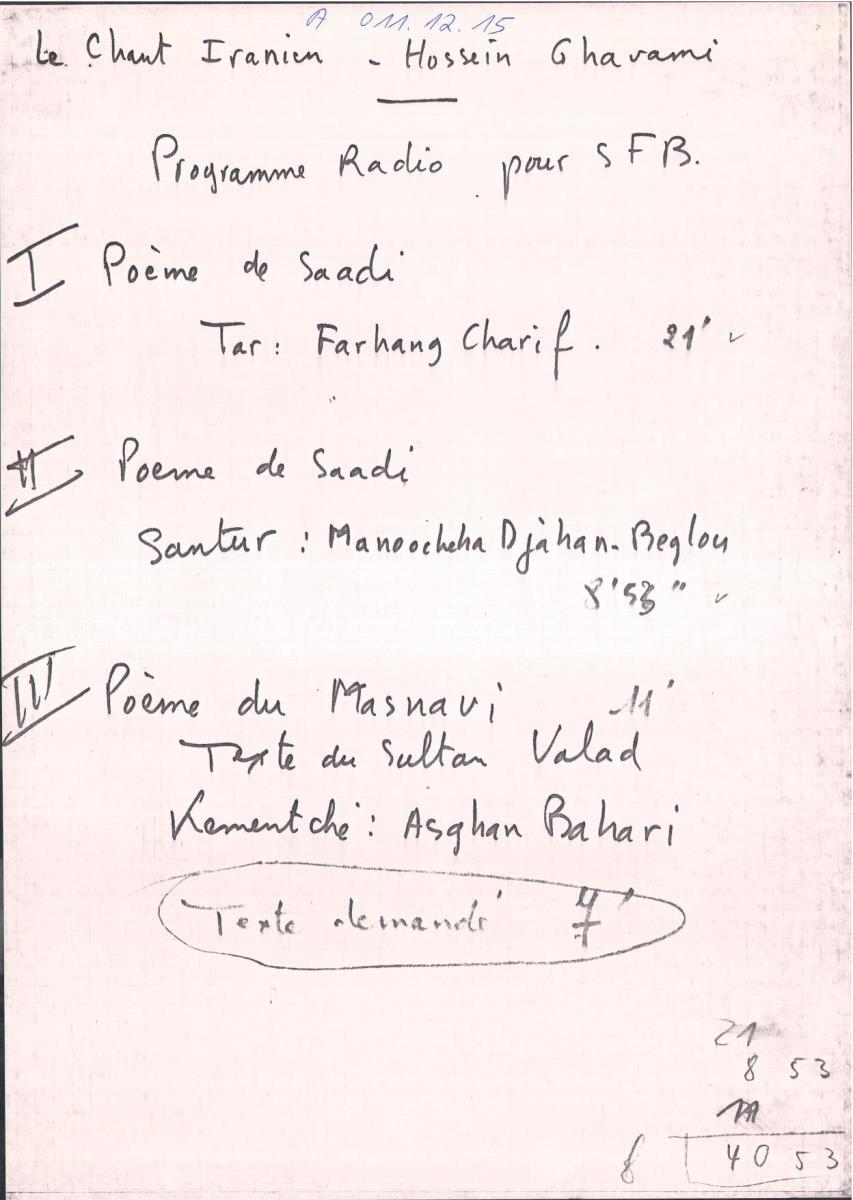 A 011.12.15
Le Chant Iranien - Hossein Ghavami
Programme Radio pour SFB.
I Poème de Saadi
Tar: Farhang Charif. 21'
II Poeme de Saadi
Santur: Manoocheha Djàhan-Beglou
8'53"
III Poème du Masnavi 11'
Texte du Sultan Valad
Kementché: Asghan Bahari
Texte demandé 7'
21
8 53
11
8 40 53